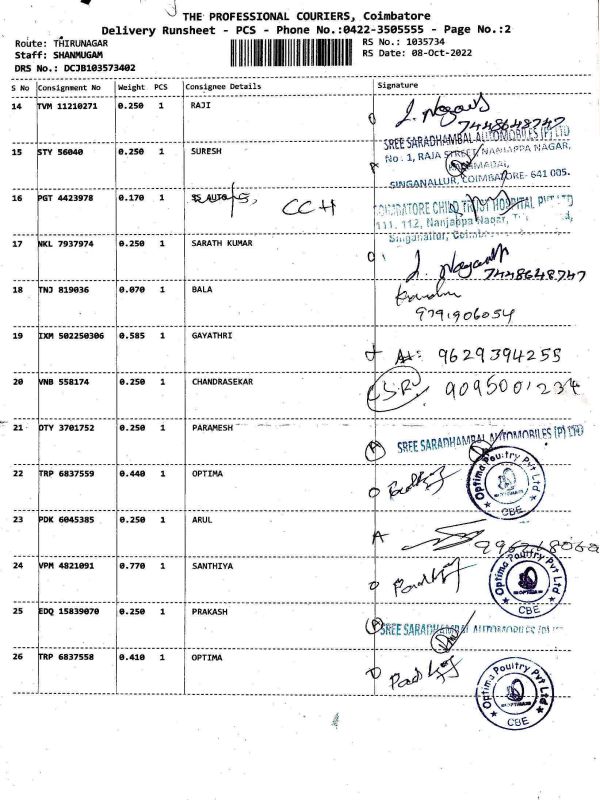 THE PROFESSIONAL COURIERS, Coimbatore
Delivery Runsheet - PCS - Phone No.:0422-3505555 - Page No.:2
Route: THIRUNAGAR
Staff: SHANMUGAM
DRS No.: DCJB103573402
RS No.: 1035734
RS Date: 08-Oct-2022
S No Consignment No Weight PCS Consignee Details Signature
14 TVM 11210271 0.250 1 RAJI
7448648747
SREE SARADHAMBAL AUTOMOBILES (P) LTD
No : 1, RAJA STREET, NANJAPPA NAGAR,
SINGANALLUR, COIMBATORE- 641 005.
15 STY 56040 0.250 1 SURESH
16 PGT 4423978 0.170 1 SS AUTO CCH
COIMBATORE CHILD TRUST HOSPITAL PVT LTD
111, 112, Nanjappa Nagar,
Singanallur,
17 NKL 7937974 0.250 1 SARATH KUMAR
7448648747
18 TNJ 819036 0.070 1 BALA
9791906054
19 IXM 502250306 0.585 1 GAYATHRI
9629394255
20 VNB 558174 0.250 1 CHANDRASEKAR
9095001234
21 DTY 3701752 0.250 1 PARAMESH
SREE SARADHAMBAL AUTOMOBILES (P) LTD
22 TRP 6837559 0.440 1 OPTIMA
Optima Poultry Pvt Ltd
CBE
23 PDK 6045385 0.250 1 ARUL
24 VPM 4821091 0.770 1 SANTHIYA
Optima Poultry Pvt Ltd
CBE
25 EDQ 15839070 0.250 1 PRAKASH
SREE SARADHAMBAL AUTOMOBILES (P) LTD
26 TRP 6837558 0.410 1 OPTIMA
Optima Poultry Pvt Ltd
CBE